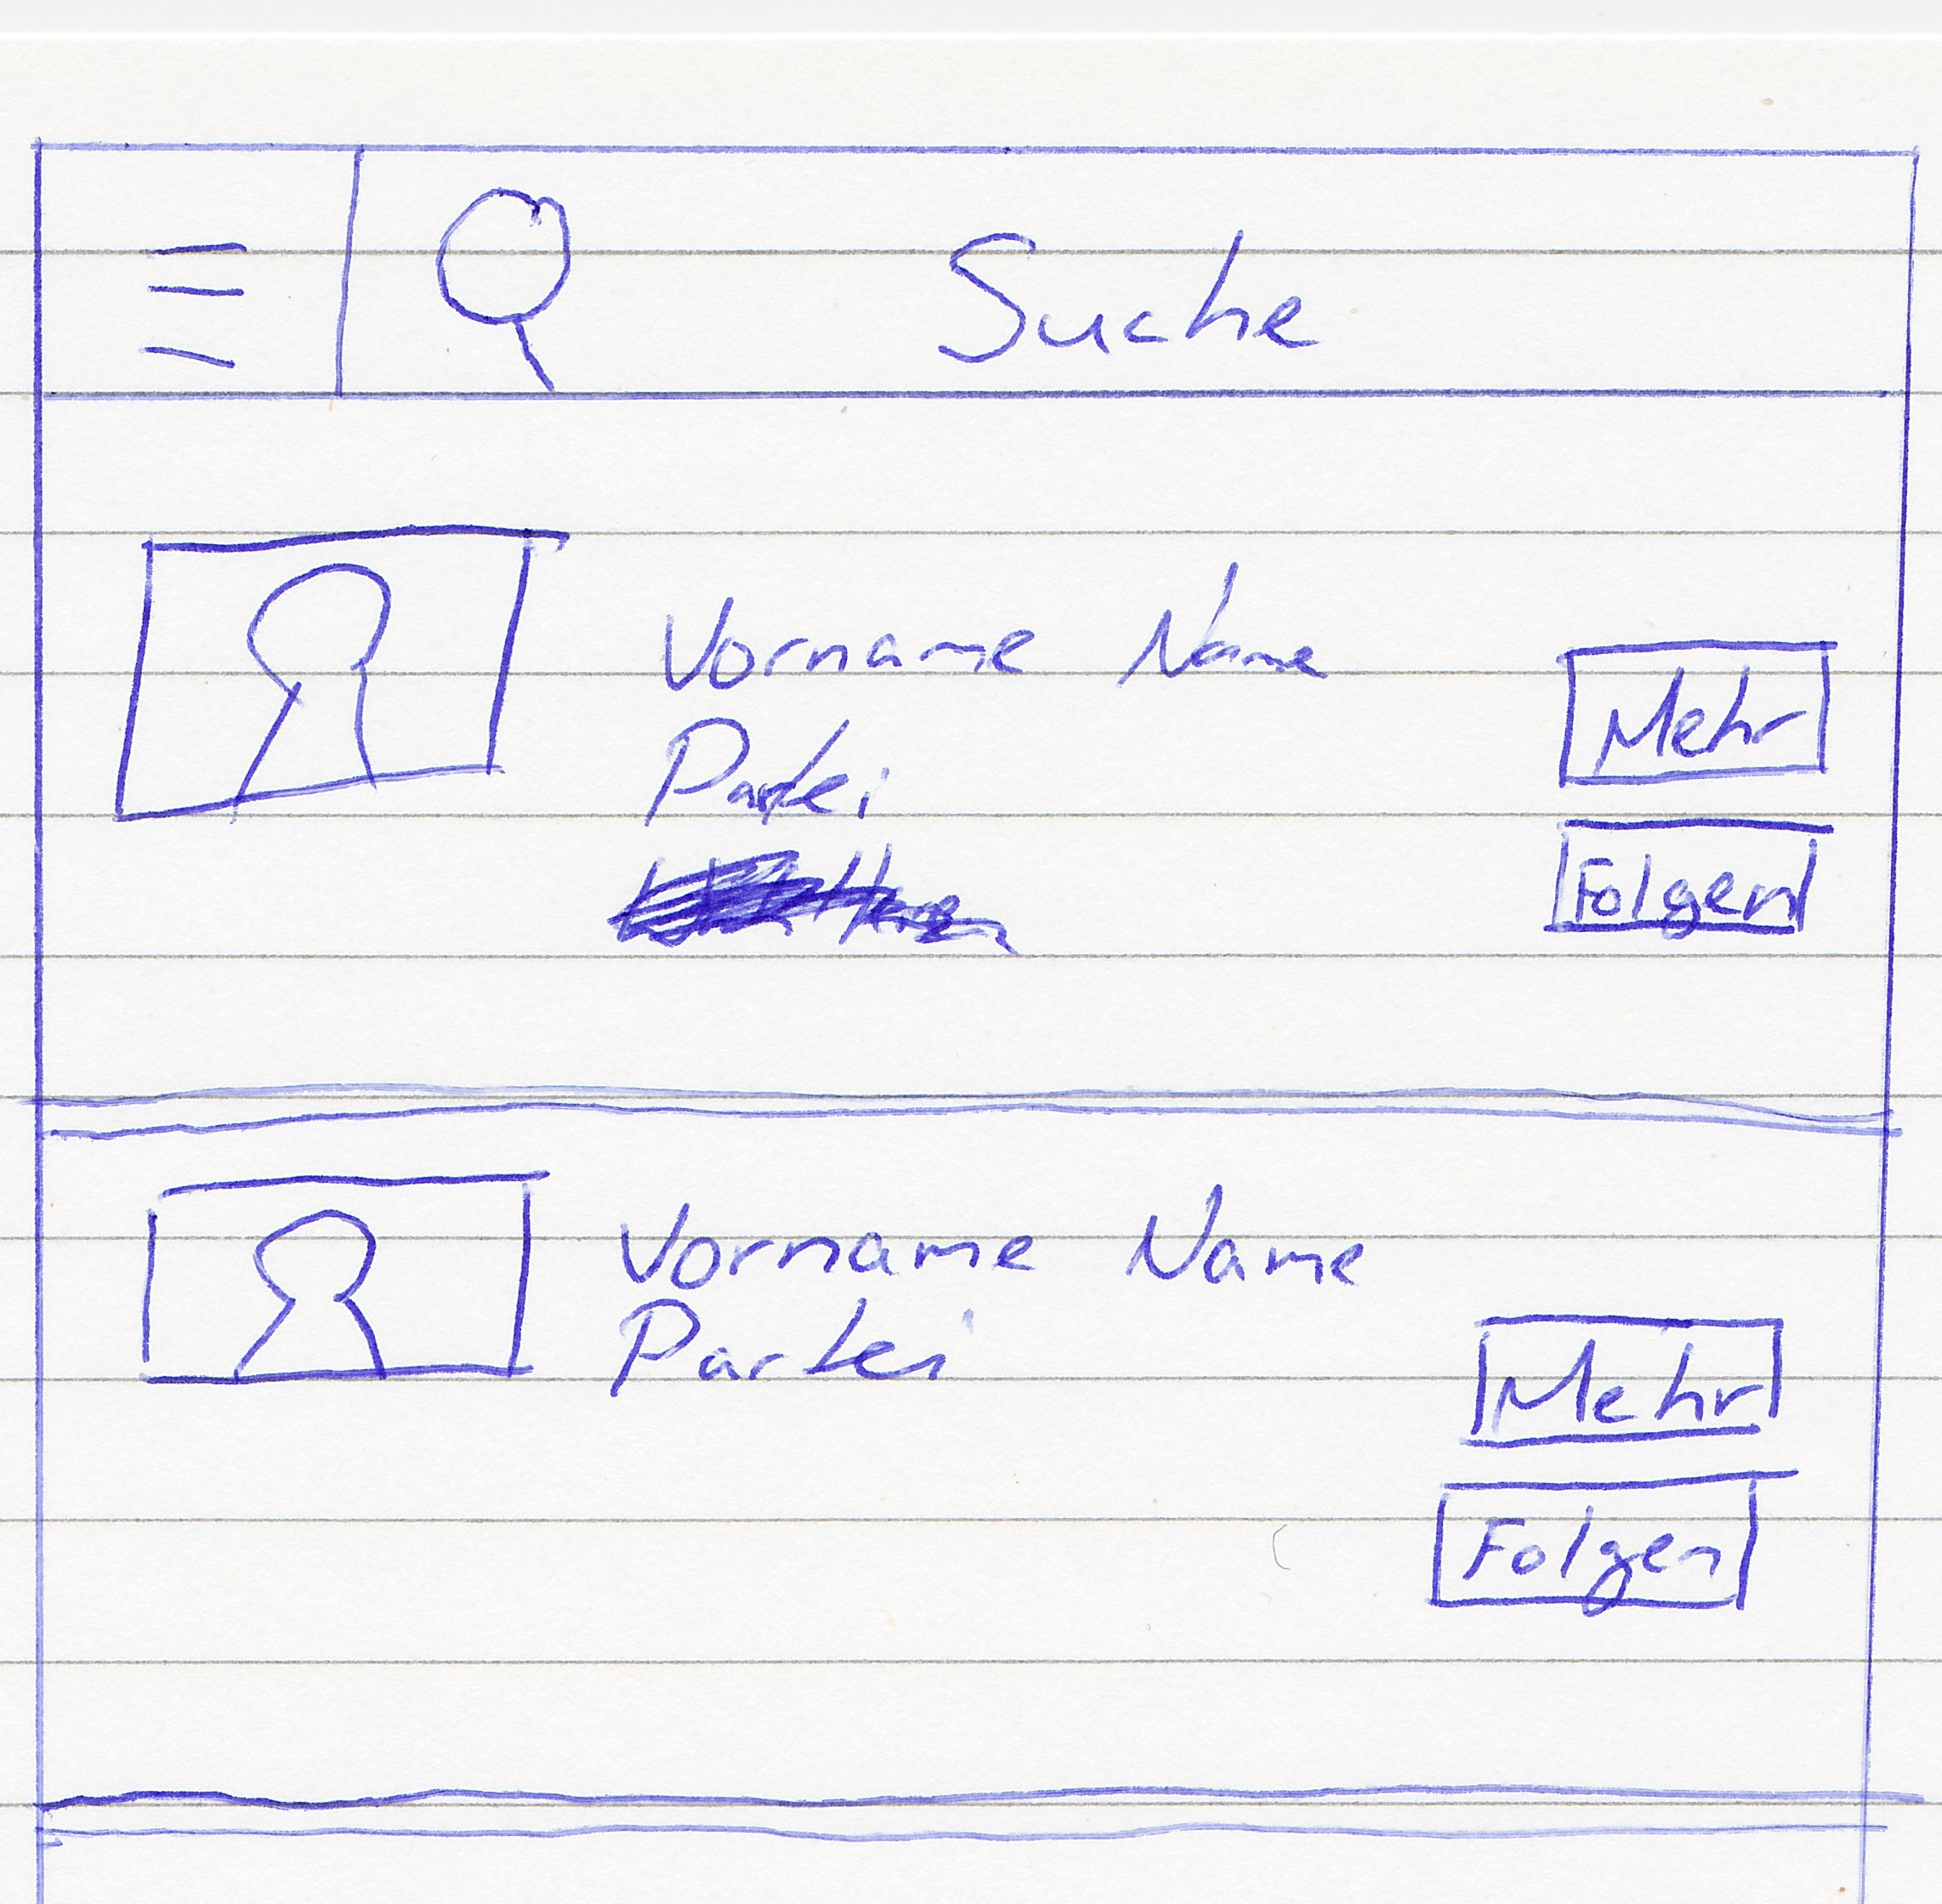 Suche
Vorname Name
Partei
Mehr
Folgen
Vorname Name
Partei
Mehr
Folgen